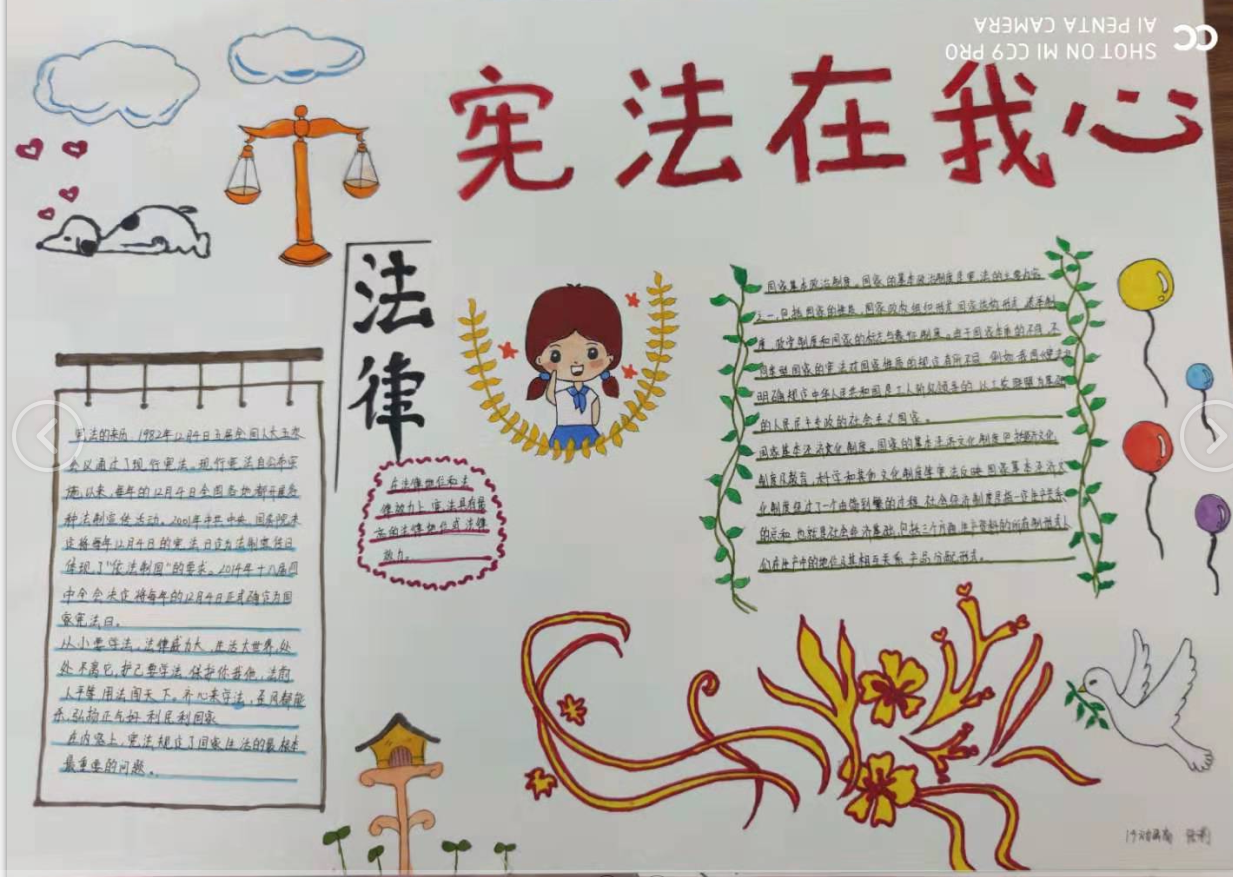 SHOT ON MI CC9 PRO
AI PENTA CAMERA
宪法在我心
法律
宪法的来历：1982年12月4日五届全国人大五次
会议通过了现行宪法。现行宪法自公布实
施以来，每年的12月4日全国各地都开展各
种法制宣传活动。2001年中共中央、国务院决
定将每年12月4日的宪法日定为法制宣传日
体现了"依法制国"的要求。2014年十八届四
中全会决定将每年的12月4日正式确定为国
家宪法日。
从小要学法，法律威力大，生活大世界，处
处不离它，护己要学法，保护你我他，法前
人平等用法闯天下。齐心来守法，
乐，弘扬正气好利民利国家
在内容上，宪法规定了国家生活的最根本
最重要的问题。
在法律地位和法
律效力上，宪法具有最
高的法律地位或法律
效力。
国家基本政治制度。国家的基本政治制度是宪法的主要内容
之一，包括国家的性质、国家政权组织形式国家结构形式、选举制
度、政党制度和国家的标志与象征制度。由于国家本质的不同，不
同类型国家的宪法对国家性质的规定有所不同。例如我国
明确规定中华人民共和国是工人阶级领导的、以工农联盟为基础
的人民民主专政的社会主义国家。
国家基本经济文化制度。国家的基本经济文化制度包括经济文化
制度及教育、科学和其他文化制度等宪法反映国家基本经济文
化制度经过了一个由简到繁的过程，社会经济制度是指一定生产关系
的总和，也就是社会经济基础，包括三个方面生产资料的所有制形式人
们在生产中的地位及其相互关系，产品分配形式。